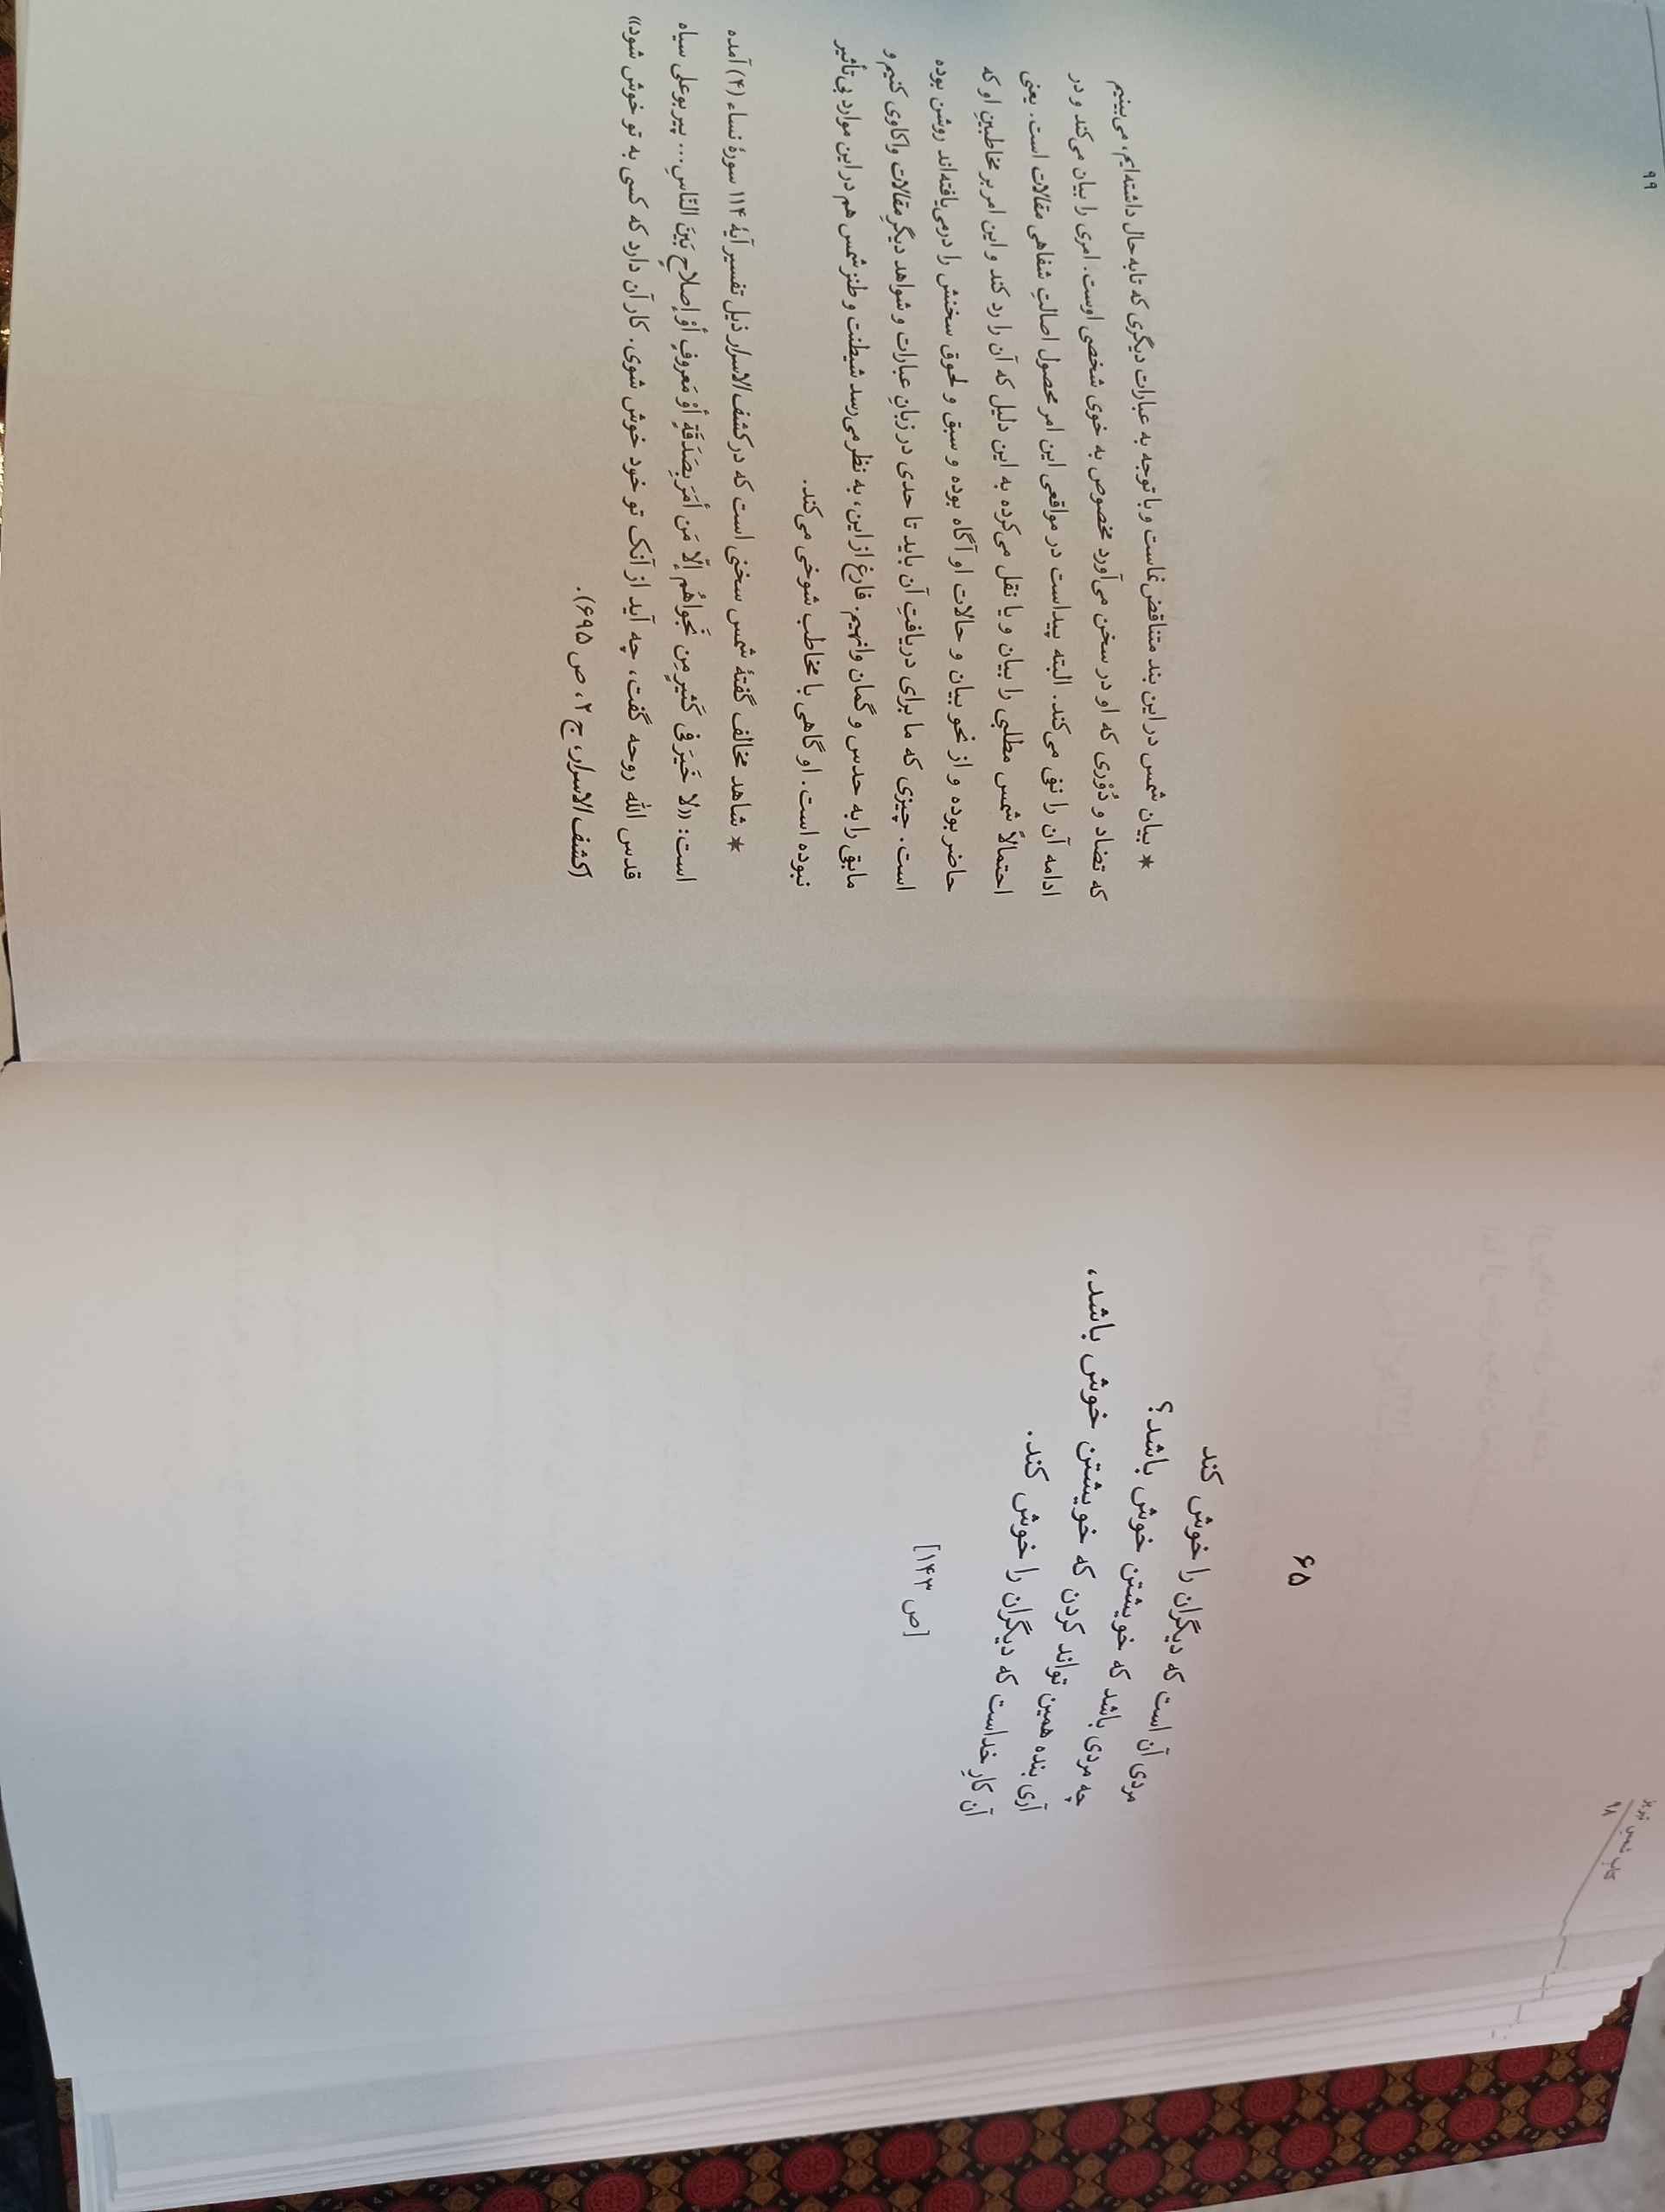 کتاب شمس تبریز
۹۸
۶۵
مردی آن است که دیگران را خوش کند
چه مردی باشد که خویشتن خوش باشد؟
آری بنده همین تواند کردن که خویشتن خوش باشد،
آن کارِ خداست که دیگران را خوش کند.
[ص ۱۴۳]
۹۹
* بیان شمس در این بند متناقض‌نماست و با توجه به عبارات دیگری که تابه‌حال داشته‌ایم، می‌بینیم
که تضاد و دُوْری که او در سخن می‌آورد مخصوص به خوی شخصی اوست. امری را بیان می‌کند و در
ادامه آن را نفی می‌کند. البته پیداست در مواقعی این امر محصول اصالتِ شفاهی مقالات است. یعنی
احتمالاً شمس مطلبی را بیان و یا نقل می‌کرده به این دلیل که آن را رد کند و این امر بر مخاطبینِ او که
حاضر بوده و از نحو بیان و حالات او آگاه بوده و سبق و لحوق سخنش را درمی‌یافته‌اند روشن بوده
است. چیزی که ما برای دریافتِ آن باید تا حدی در زبانِ عبارات و شواهد دیگرِ مقالات واکاوی کنیم و
مابقی را به حدس و گمان وانهیم. فارغ از این، به نظر می‌رسد شیطنت و طنز شمس هم در این موارد بی‌تأثیر
نبوده است. او گاهی با مخاطب شوخی می‌کند.
* شاهد مخالف گفتهٔ شمس سخنی است که در کشف‌الاسرار ذیل تفسیر آیهٔ ۱۱۴ سورهٔ نساء (۴) آمده
است: «لا خَیرَ فی کَثیرٍ مِن نَجواهُم إلّا مَن أمَرَ بِصَدَقَةٍ أوْ مَعروفٍ أوْ إصلاحٍ بَینَ النّاسِ... پیر بوعلی سیاه
قدس الله روحه گفت، چه آید از آنک تو خود خوش شوی. کار آن دارد که کسی به تو خوش شود»
(کشف‌الاسرار، ج ۲، ص ۶۹۵).